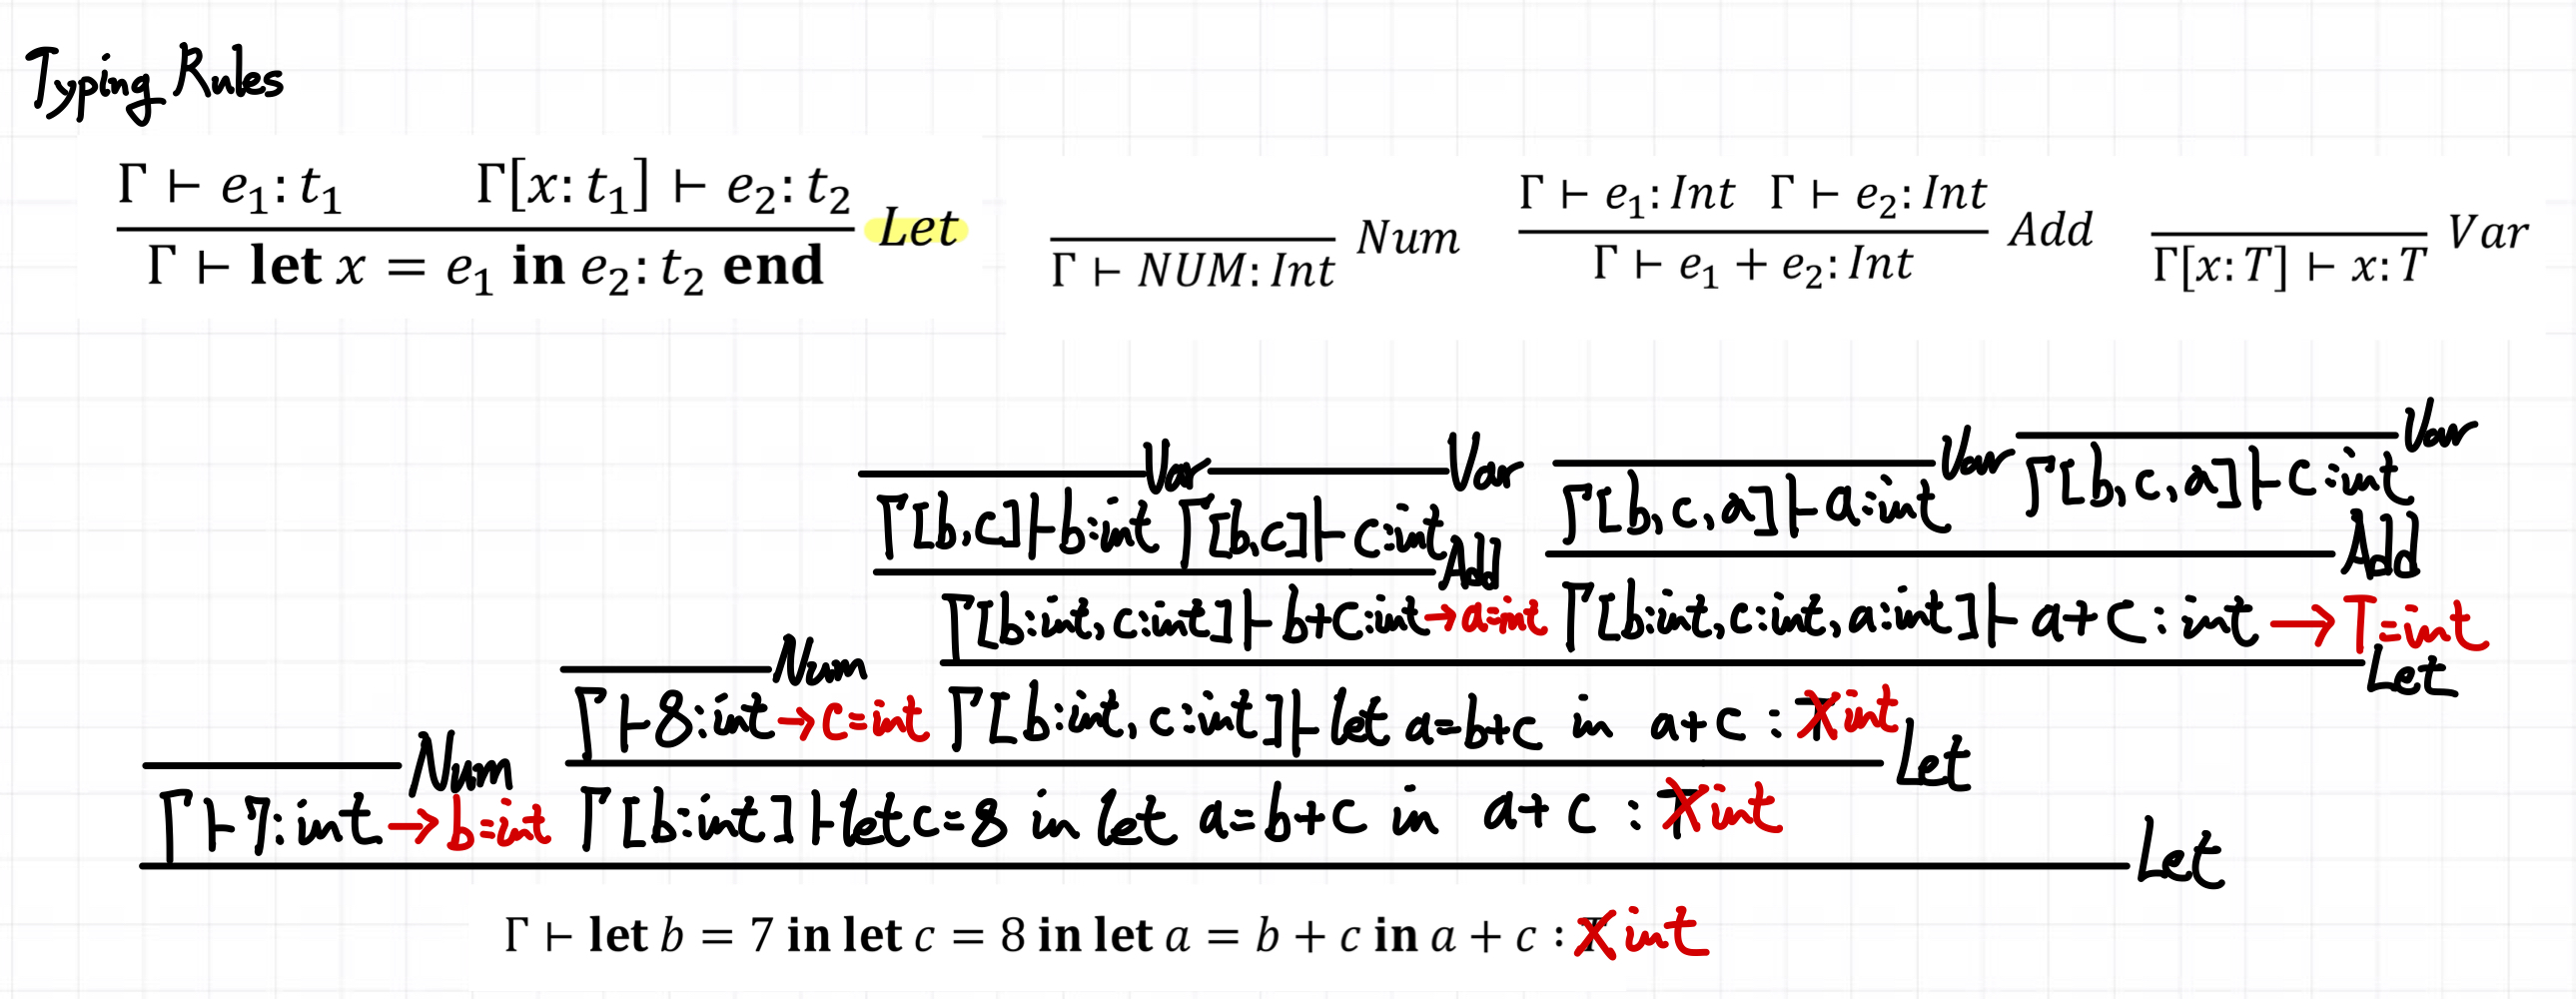 Typing Rules
Γ ⊢ e₁: t₁    Γ[x: t₁] ⊢ e₂: t₂
Let
Γ ⊢ let x = e₁ in e₂: t₂ end
Num
Γ ⊢ NUM: Int
Γ ⊢ e₁: Int  Γ ⊢ e₂: Int
Add
Γ ⊢ e₁ + e₂: Int
Var
Γ[x: T] ⊢ x: T
Var Var Var Var
Γ[b,c]⊢b:int Γ[b,c]⊢c:int Γ[b,c,a]⊢a:int Γ[b,c,a]⊢c:int
Add Add
Γ[b:int,c:int]⊢b+c:int→a=int Γ[b:int,c:int,a:int]⊢a+c:int→T=int
Num Let
Γ⊢8:int→c=int Γ[b:int,c:int]⊢let a=b+c in a+c:T int
Num Let
Γ⊢7:int→b=int Γ[b:int]⊢let c=8 in let a=b+c in a+c:T int
Let
Γ ⊢ let b = 7 in let c = 8 in let a = b + c in a + c : T int